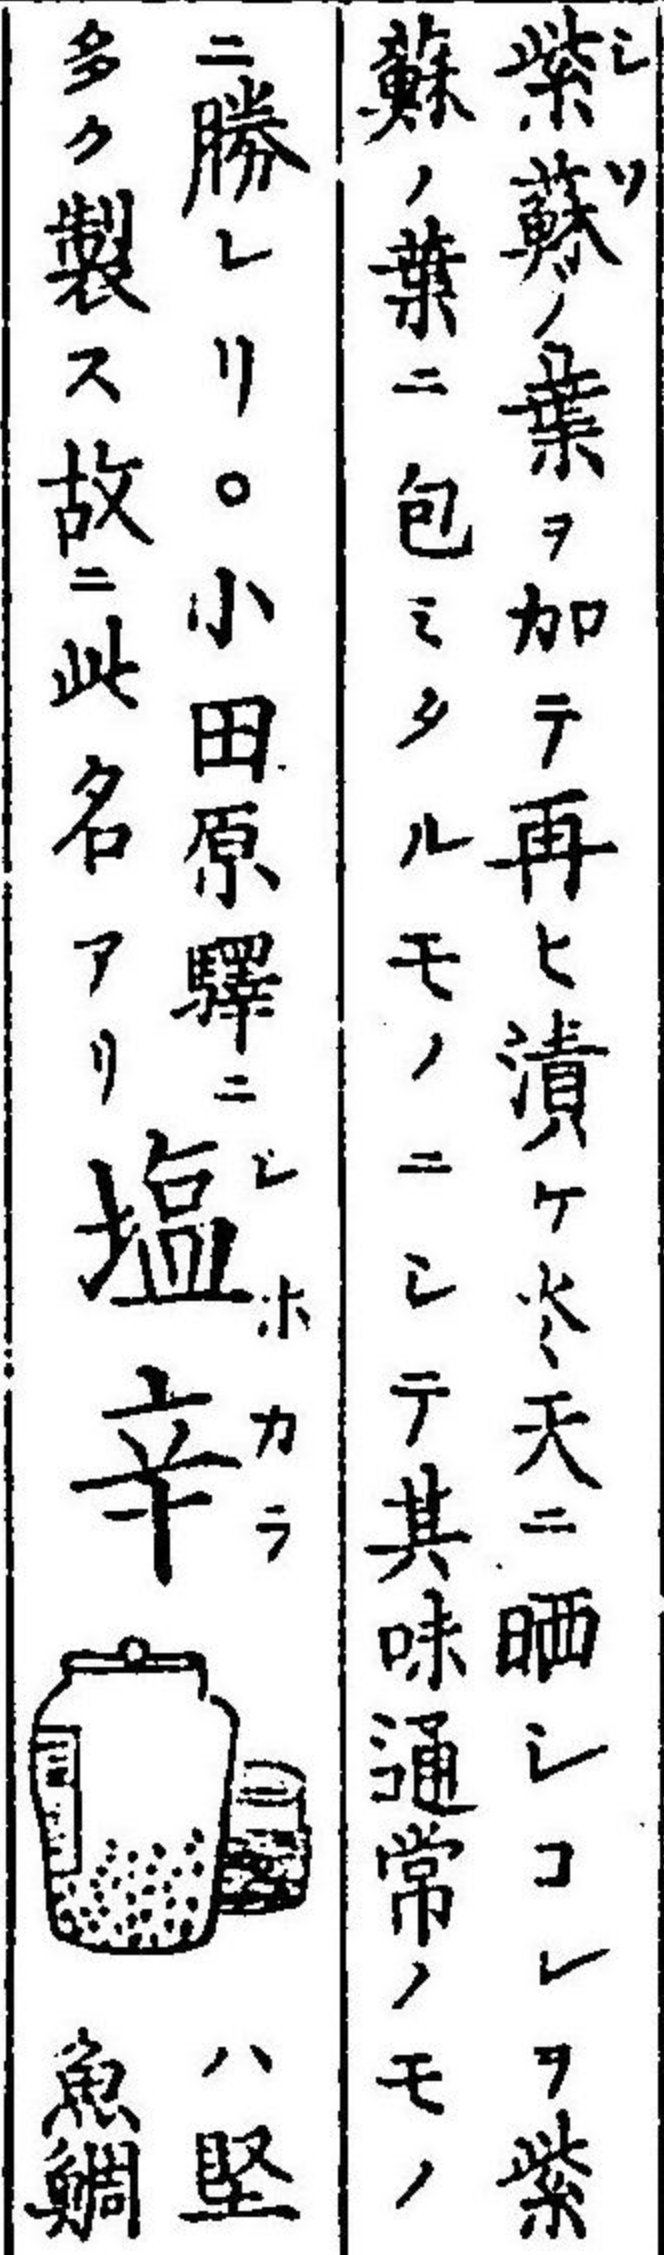 紫蘇ノ葉ヲ加テ再ヒ漬ケ炎天ニ晒シコレヲ紫
シソ
蘇ノ葉ニ包ミタルモノニシテ其味通常ノモノ
ニ勝レリ○小田原驛ニ
多ク製ス故ニ此名アリ
塩辛
シホカラ
ハ堅
魚鯛